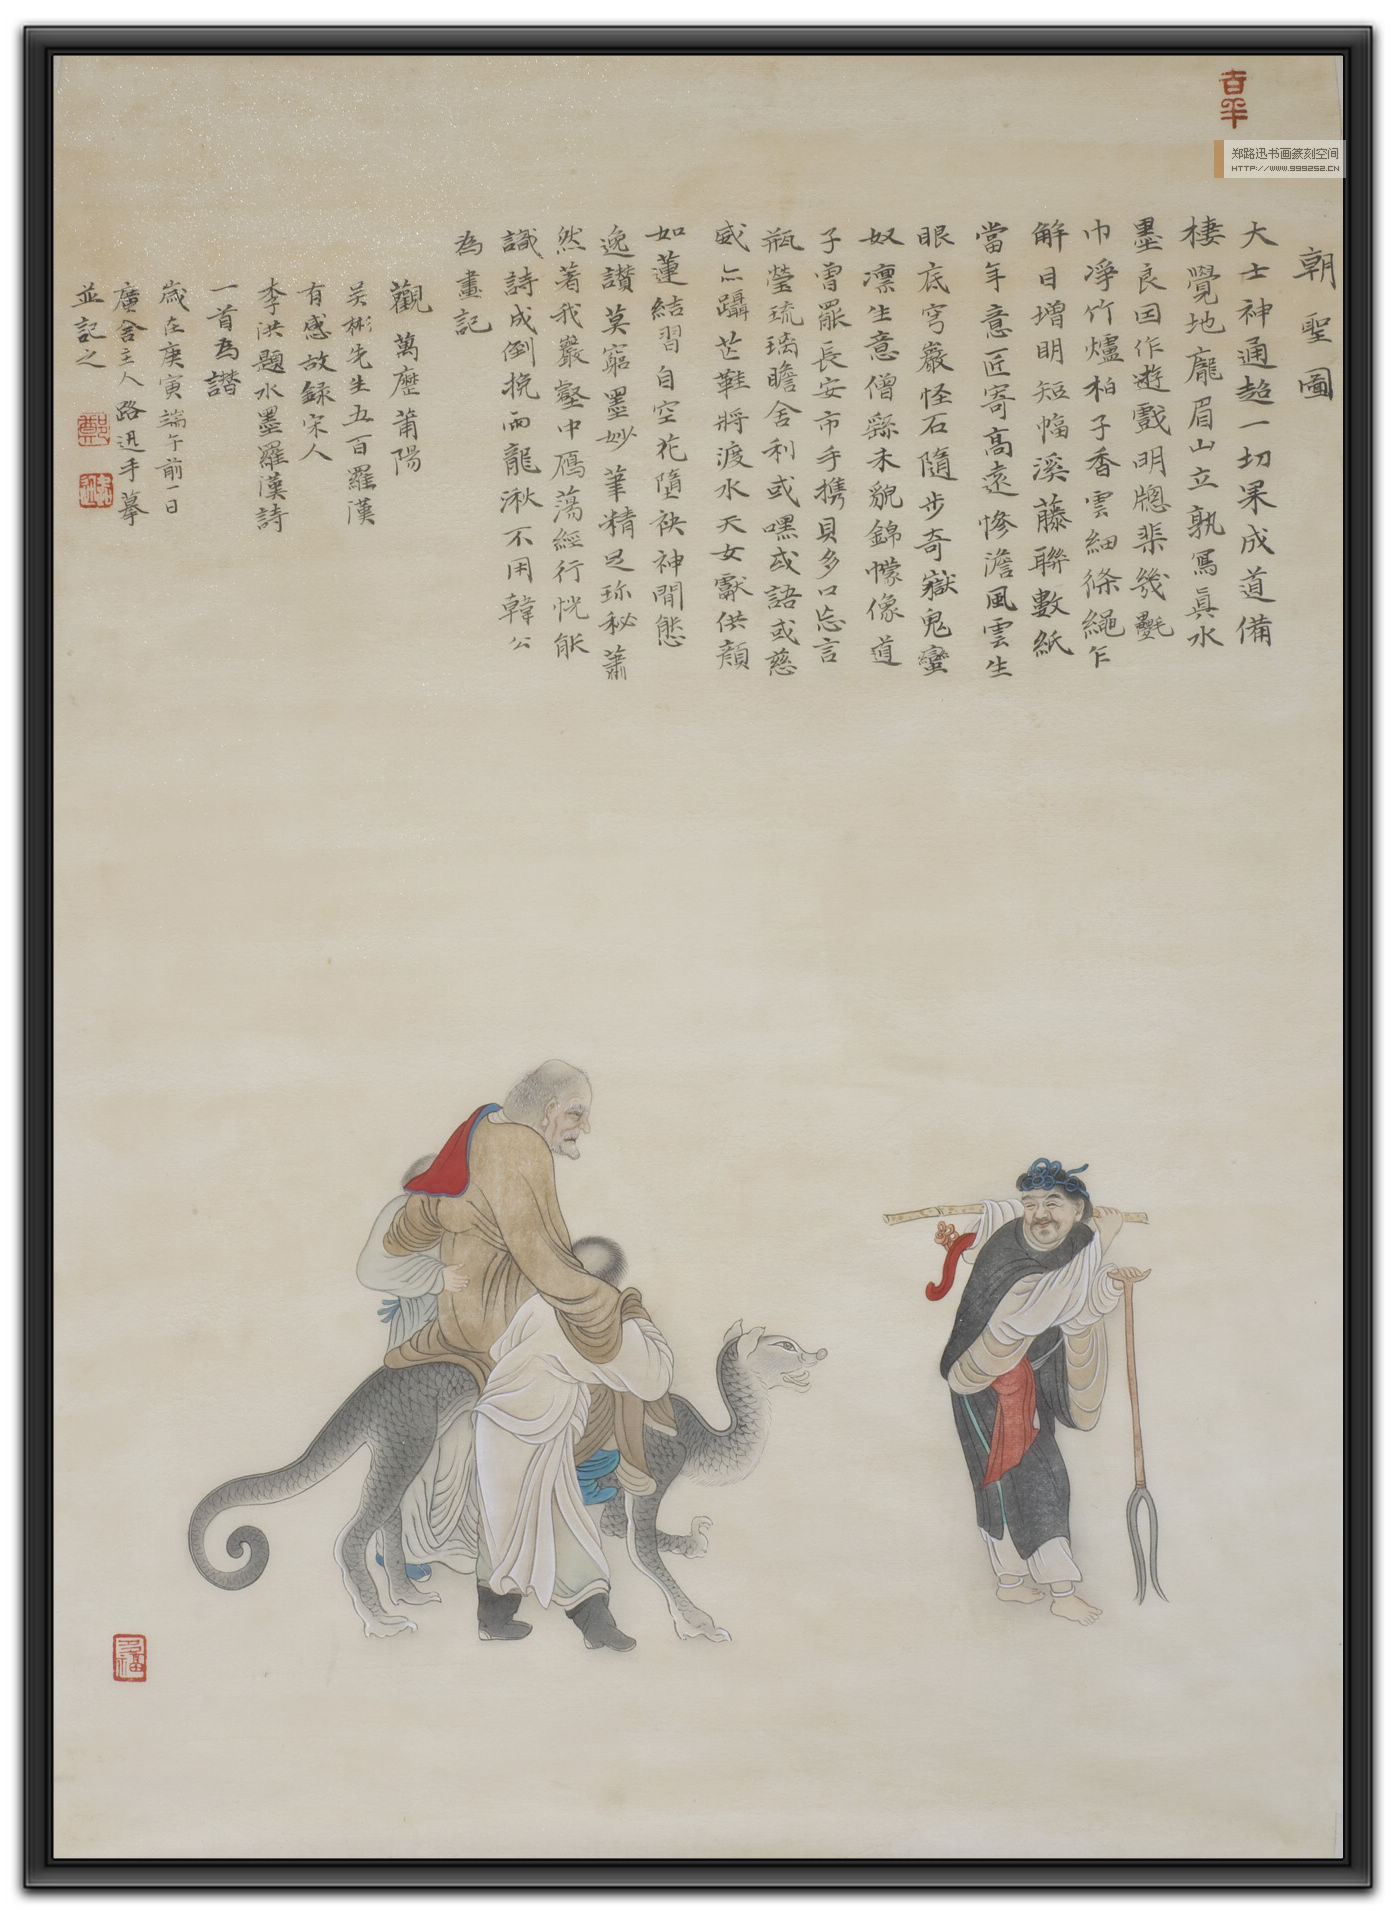 朝聖圖
大士神通超一切果成道備
棲覺地龐眉山立孰寫真水
墨良因作遊戲明牕棐幾氎
巾凈竹爐柏子香雲細絛繩乍
解目增明短幅溪藤聯數紙
當年意匠寄高遠慘澹風雲生
眼底穹巖怪石隨步奇嶽鬼蠻
奴凛生意僧繇未貌錦幪像道
子曾罷長安市手携貝多口忘言
瓶瑩琉璃瞻舍利或嘿或語或慈
威亦躡芒鞋將渡水天女獻供顔
如蓮結習自空花墮袂神閒態
逸讃莫窮墨妙筆精足珎秘蕭
然著我巖壑中鴈蕩經行恍能
識詩成倒挽兩龍湫不用韓公
為畫記
觀萬歷莆陽
吴彬先生五百羅漢
有感故録宋人
李洪題水墨羅漢詩
一首為讃
歲在庚寅端午前一日
廣舍主人路迅手摹
並記之
郑路迅书画篆刻空间
HTTP://WWW.999252.CN